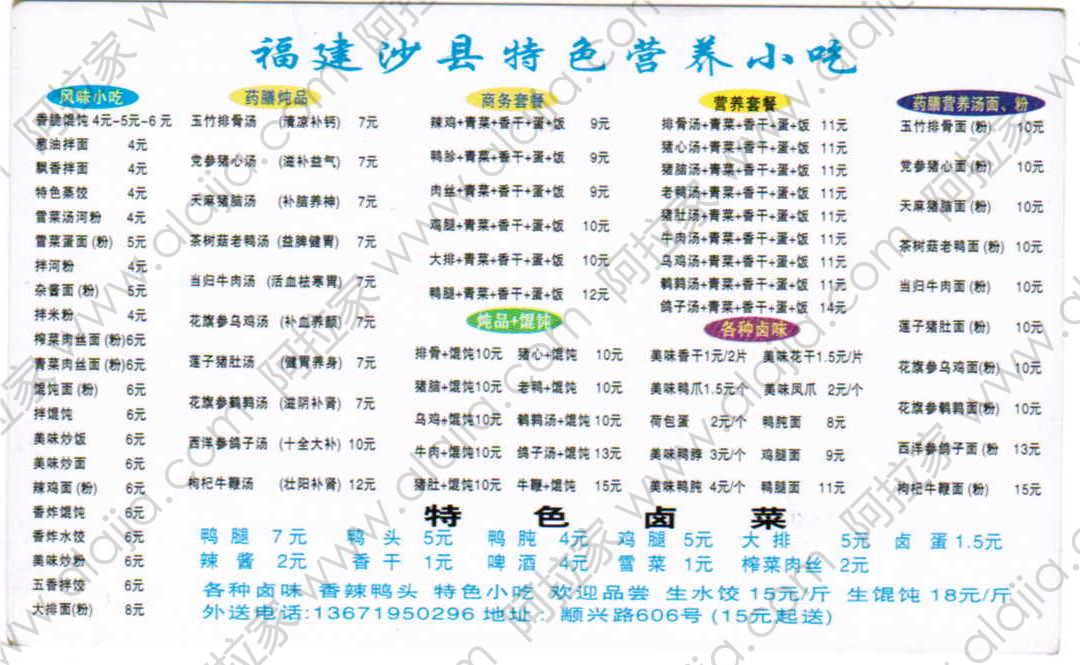 福建沙县特色营养小吃
风味小吃
香脆馄饨 4元-5元-6元
葱油拌面 4元
飘香拌面 4元
特色蒸饺 4元
雪菜汤河粉 4元
雪菜蛋面(粉) 5元
拌河粉 4元
杂酱面(粉) 5元
拌米粉 4元
榨菜肉丝面(粉)6元
青菜肉丝面(粉)6元
馄饨面(粉) 6元
拌馄饨 6元
美味炒饭 6元
美味炒面 6元
辣鸡面(粉) 6元
香炸馄饨 6元
香炸水饺 6元
美味炒粉 6元
五香拌饺 6元
大排面(粉) 8元
药膳炖品
玉竹排骨汤 (清凉补钙) 7元
党参猪心汤 (滋补益气) 7元
天麻猪脑汤 (补脑养神) 7元
茶树菇老鸭汤 (益脾健胃) 7元
当归牛肉汤 (活血祛寒胃) 7元
花旗参乌鸡汤 (补血养颜) 7元
莲子猪肚汤 (健胃养身) 7元
花旗参鹌鹑汤 (滋阴补肾) 7元
西洋参鸽子汤 (十全大补) 10元
枸杞牛鞭汤 (壮阳补肾) 12元
商务套餐
辣鸡+青菜+香干+蛋+饭 9元
鸭胗+青菜+香干+蛋+饭 9元
肉丝+青菜+香干+蛋+饭 9元
鸡腿+青菜+香干+蛋+饭 10元
大排+青菜+香干+蛋+饭 10元
鸭腿+青菜+香干+蛋+饭 12元
炖品+馄饨
排骨+馄饨10元 猪心+馄饨 10元
猪脑+馄饨10元 老鸭+馄饨 10元
乌鸡+馄饨10元 鹌鹑汤+馄饨 10元
牛肉+馄饨10元 鸽子汤+馄饨 13元
猪肚+馄饨10元 牛鞭+馄饨 15元
营养套餐
排骨汤+青菜+香干+蛋+饭 11元
猪心汤+青菜+香干+蛋+饭 11元
猪脑汤+青菜+香干+蛋+饭 11元
老鸭汤+青菜+香干+蛋+饭 11元
猪肚汤+青菜+香干+蛋+饭 11元
牛肉汤+青菜+香干+蛋+饭 11元
乌鸡汤+青菜+香干+蛋+饭 11元
鹌鹑汤+青菜+香干+蛋+饭 11元
鸽子汤+青菜+香干+蛋+饭 14元
各种卤味
美味香干1元/2片 美味花干1.5元/片
美味鸭爪1.5元/个 美味凤爪 2元/个
荷包蛋 2元/个 鸭肫面 8元
美味鸭脖 3元/个 鸡腿面 9元
美味鸭肫 4元/个 鸭腿面 11元
药膳营养汤面、粉
玉竹排骨面(粉) 10元
党参猪心面(粉) 10元
天麻猪脑面(粉) 10元
茶树菇老鸭面(粉) 10元
当归牛肉面(粉) 10元
莲子猪肚面(粉) 10元
花旗参乌鸡面(粉) 10元
花旗参鹌鹑面(粉) 10元
西洋参鸽子面(粉 13元
枸杞牛鞭面(粉) 15元
特色卤菜
鸭腿 7元 鸭头 5元 鸭肫 4元 鸡腿 5元 大排 5元 卤蛋1.5元
辣酱 2元 香干 1元 啤酒 4元 雪菜 1元 榨菜肉丝 2元
各种卤味 香辣鸭头 特色小吃 欢迎品尝 生水饺 15元/斤 生馄饨 18元/斤
外送电话:13671950296 地址: 顺兴路606号 (15元起送)
阿拉家 www.alajia.com